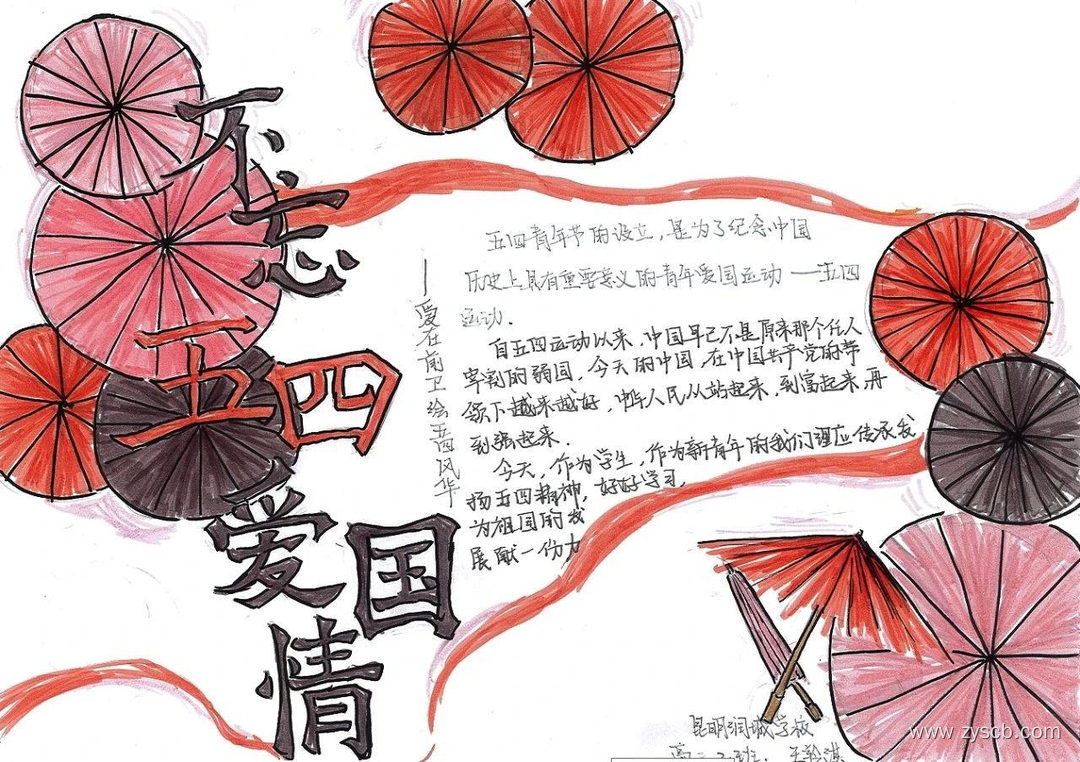 不忘
五四
爱国
情
——爱在前卫绘五四风华
五四青年节的设立，是为了纪念中国
历史上具有重要意义的青年爱国运动——五四
运动.
自五四运动以来，中国早已不是原来那个任人
宰割的弱国，今天的中国，在中国共产党的带
领下越来越好，中华人民从站起来，到富起来，再
到强起来.
今天，作为学生，作为新青年的我们理应传承发
扬五四精神，好好学习，
为祖国的发
展献一份力
昆明润城学校
高二2班.
www.zyscb.com